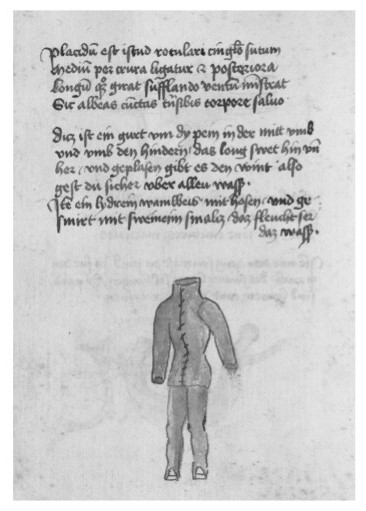 Placidū est istud rotulari cinglo sutum
Mediū per crura ligatur & posteriora
Longū girat sufflando ventū
Sic albeas cūctas corpore salvo
Dicz ist ein gurt vm dy pein in der mitt vmb
vnd vmb den hindern das long get hin vn̄
her vnd geplasen gibt es den wint also
gest du sicher vber alleu wass.
Itē ein lydrein wambeis mit hosen vnd ge
smirt mit sweineim smalcz daz fleucht ser
daz wass.